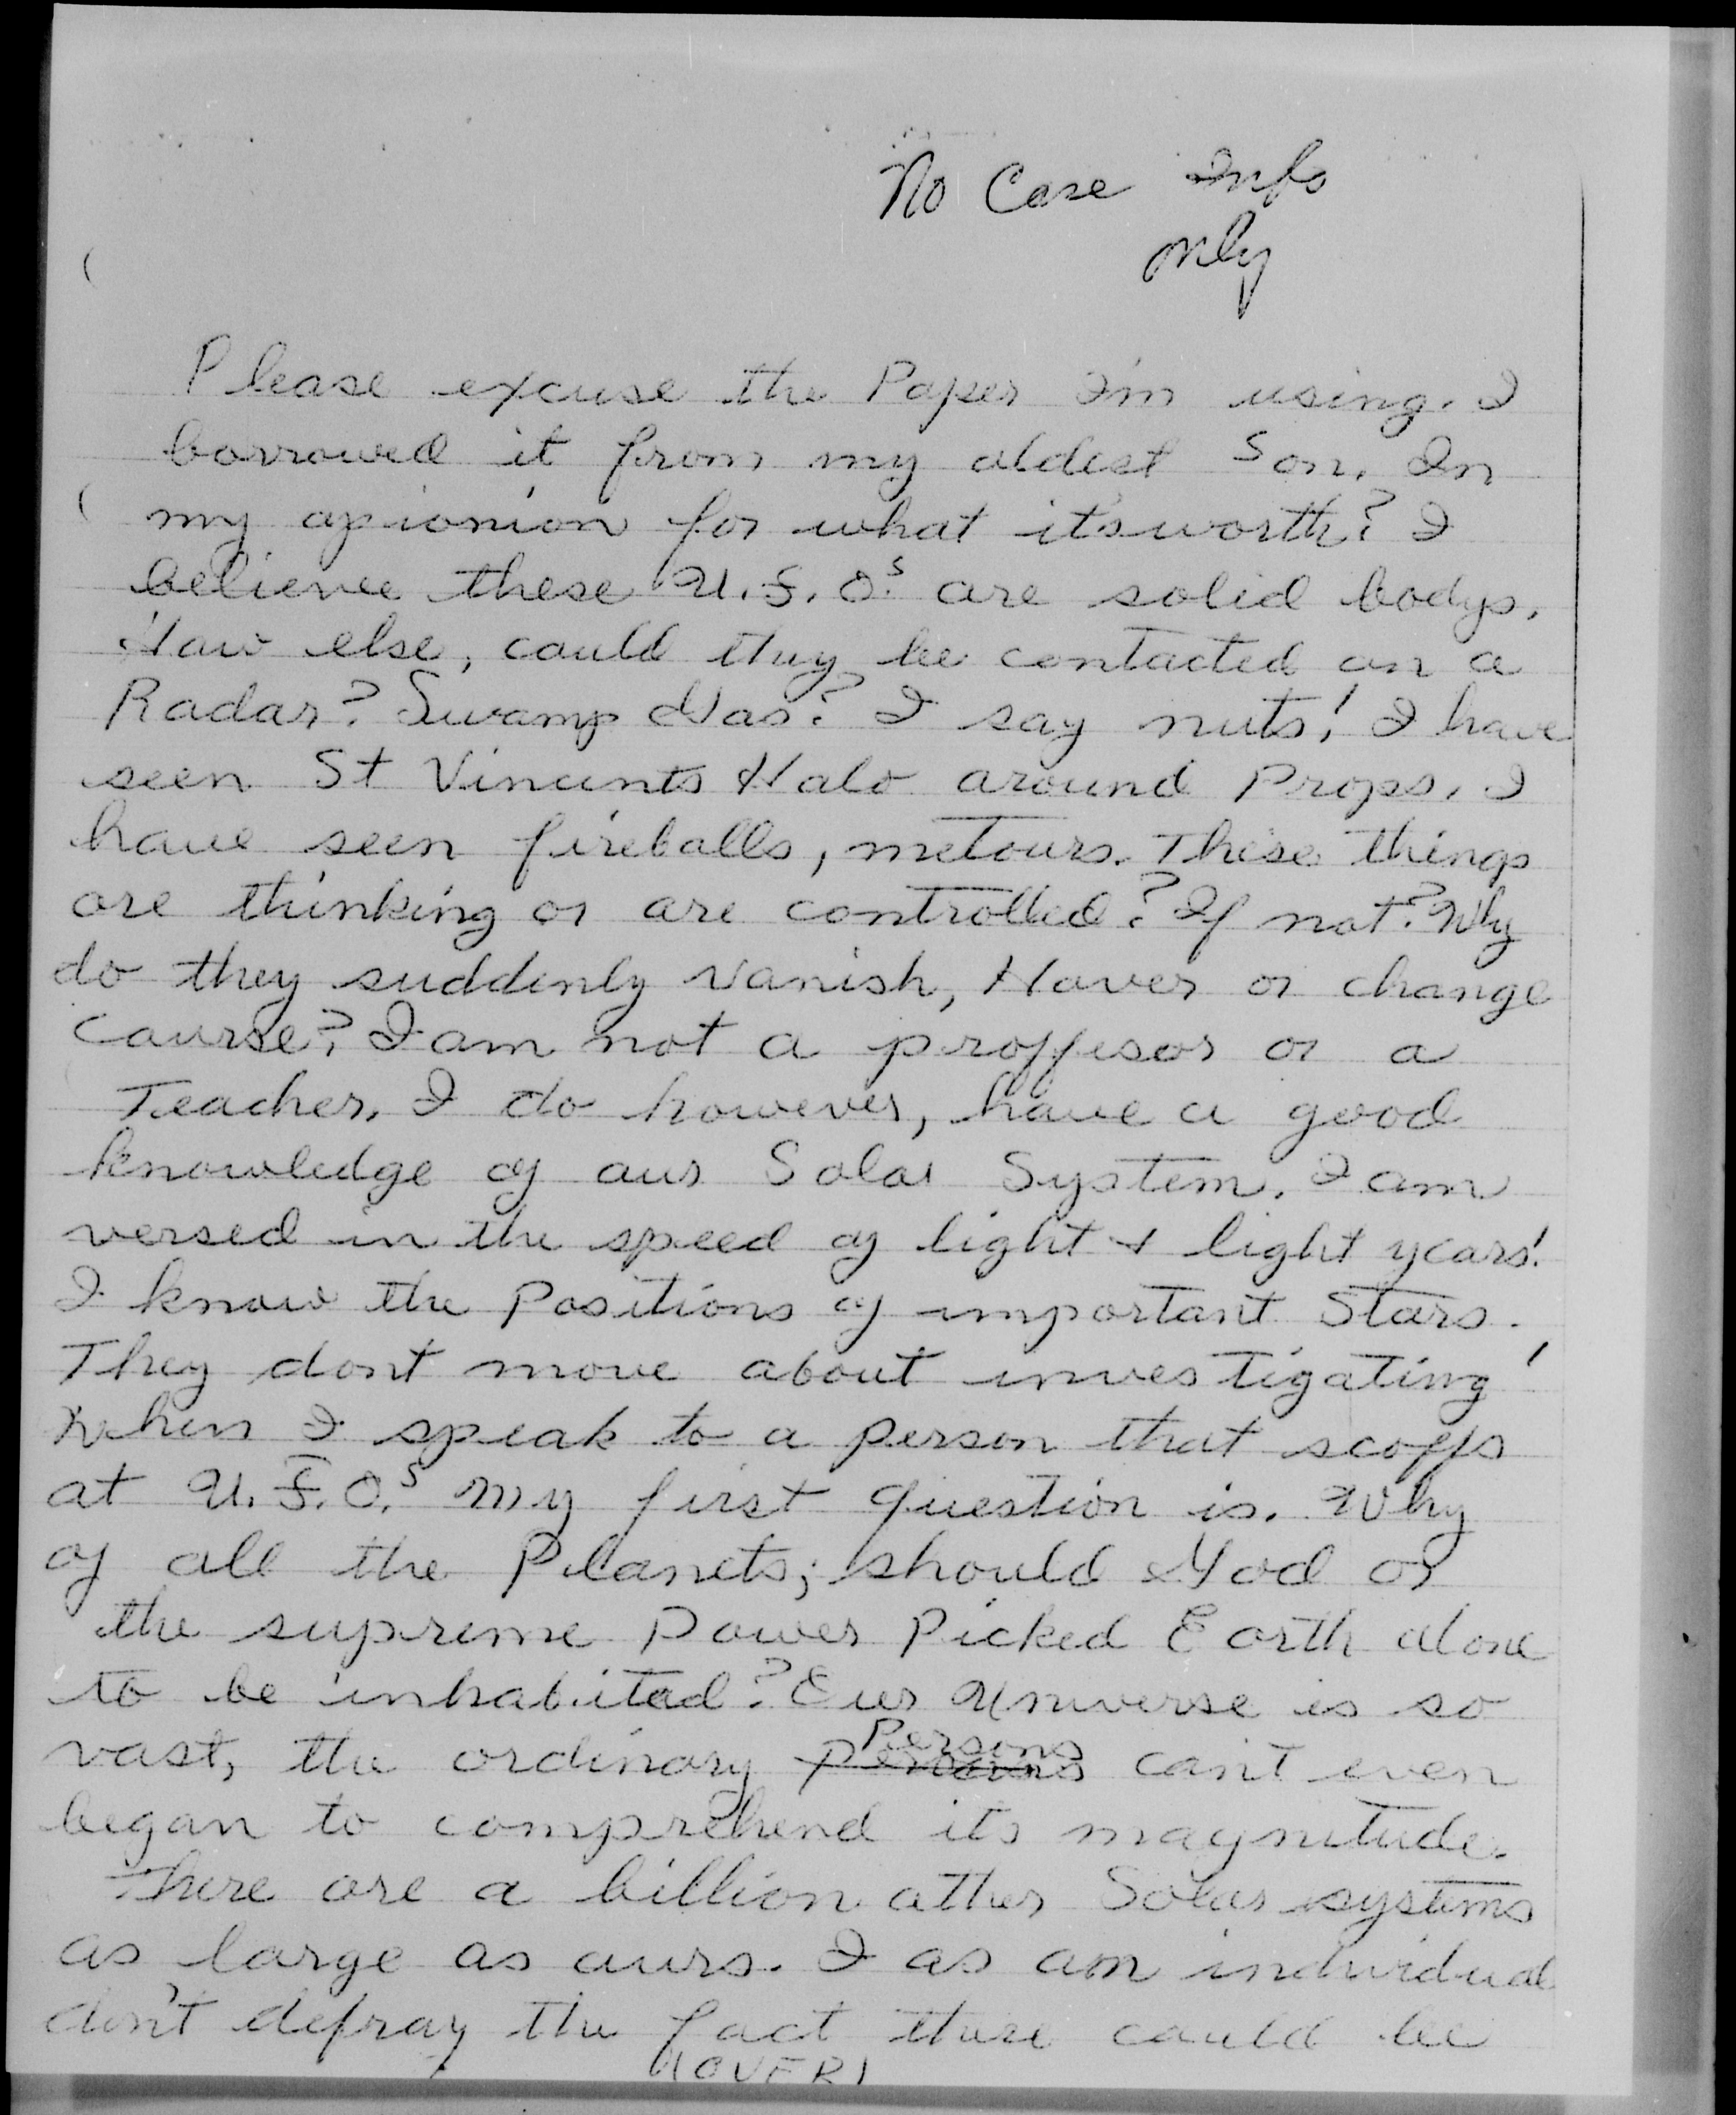 No Case Info
only
Please excuse the Paper I'm using. I
borrowed it from my oldest Son. In
my apionion for what it's worth? I
believe these U.F.O.s are solid bodys.
How else, could they be contacted on a
Radar? Swamp Gas? I say nuts! I have
seen St Vincents Halo around Props. I
have seen fireballs, metours. These things
are thinking or are controlled? If not? Why
do they suddenly vanish, Hover or change
course? I am not a proffesor or a
Teacher. I do however, have a good
knowledge of our Solar System. I am
versed in the speed of light + light years!
I know the Positions of important Stars.
They dont move about investigating!
When I speak to a person that scoffs
at U.F.O.s My first question is. Why
of all the Planets; should God or
the supreme Power Picked Earth alone
to be inhabitad? Our Universe is so
vast, the ordinary Persons can't even
began to comprehend its magnitude.
There are a billion other Solar systems
as large as ours. I as an individual
don't defray the fact there could be
(OVER)